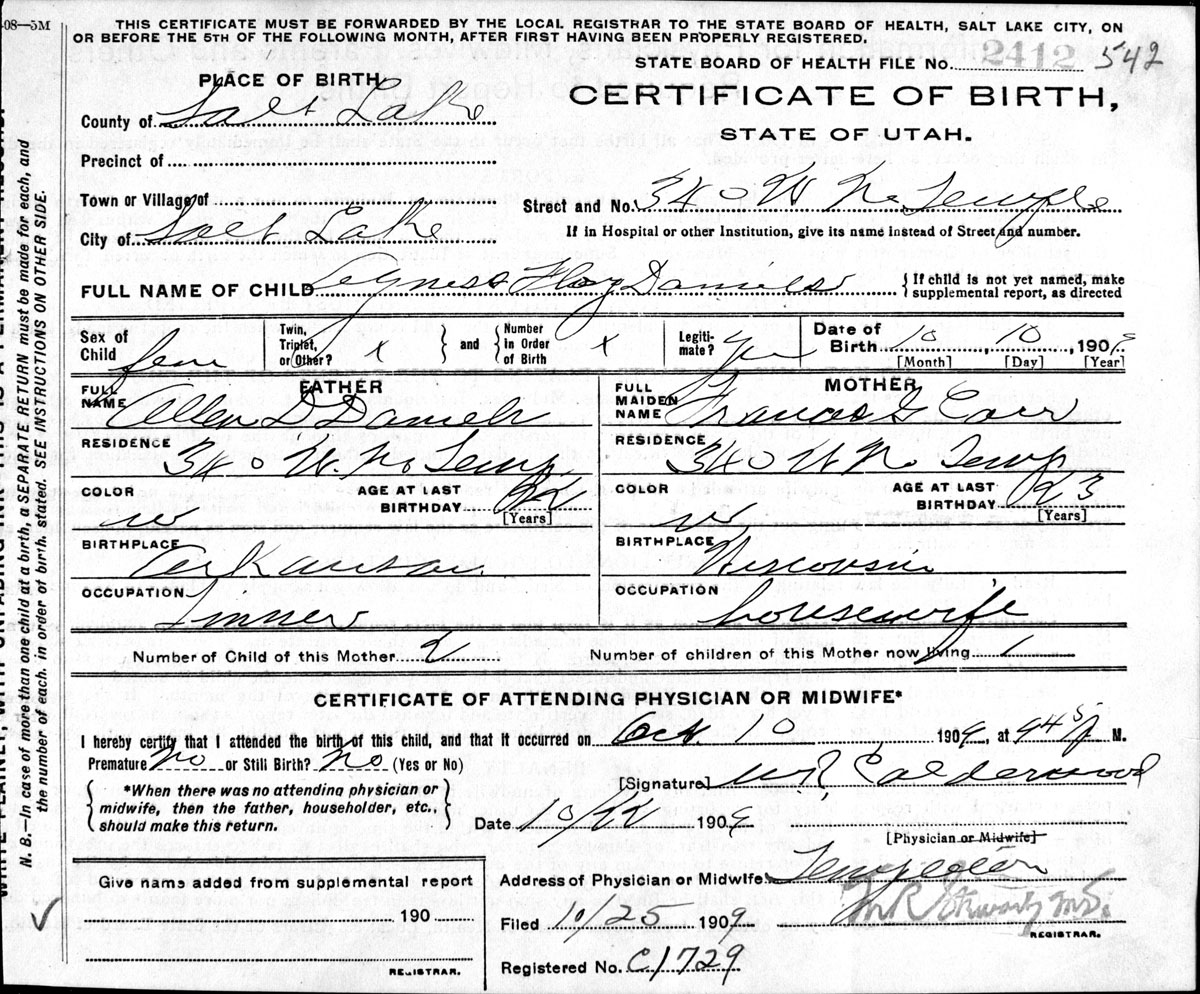 408—5M
THIS CERTIFICATE MUST BE FORWARDED BY THE LOCAL REGISTRAR TO THE STATE BOARD OF HEALTH, SALT LAKE CITY, ON
OR BEFORE THE 5TH OF THE FOLLOWING MONTH, AFTER FIRST HAVING BEEN PROPERLY REGISTERED.
STATE BOARD OF HEALTH FILE No. 2412 542
PLACE OF BIRTH
CERTIFICATE OF BIRTH,
STATE OF UTAH.
County of Salt Lake
Precinct of
Town or Village of
Street and No. 340 W No Temple
City of Salt Lake
If in Hospital or other Institution, give its name instead of Street and number.
FULL NAME OF CHILD Daniels
{If child is not yet named, make supplemental report, as directed
Sex of Child fem
Twin, Triplet, or Other? x } and { Number in Order of Birth x
Legitimate?
Date of Birth 10, 10, 1909
[Month] [Day] [Year]
FATHER
FULL NAME D Daniels
MOTHER
FULL MAIDEN NAME Frances G Carr
RESIDENCE 340 W. No Temp
RESIDENCE 340 W No Temp
COLOR w
AGE AT LAST BIRTHDAY 22 [Years]
COLOR w
AGE AT LAST BIRTHDAY 23 [Years]
BIRTHPLACE Arkansas
BIRTHPLACE Wisconsin
OCCUPATION
OCCUPATION housewife
Number of Child of this Mother 2
Number of children of this Mother now living 1
CERTIFICATE OF ATTENDING PHYSICIAN OR MIDWIFE*
I hereby certify that I attended the birth of this child, and that it occurred on Oct. 10, 1909, at 945 P M.
Premature? No or Still Birth? No (Yes or No)
[Signature] Calderwood
{*When there was no attending physician or midwife, then the father, householder, etc., should make this return.}
Date 10/22 1909
[Physician or Midwife]
Give name added from supplemental report
190
REGISTRAR.
Address of Physician or Midwife
Filed 10/25 1909
M.D.
REGISTRAR.
Registered No. C1729
N. B.—In case of more than one child at a birth, a SEPARATE RETURN must be made for each, and
the number of each, in order of birth, stated. SEE INSTRUCTIONS ON OTHER SIDE.